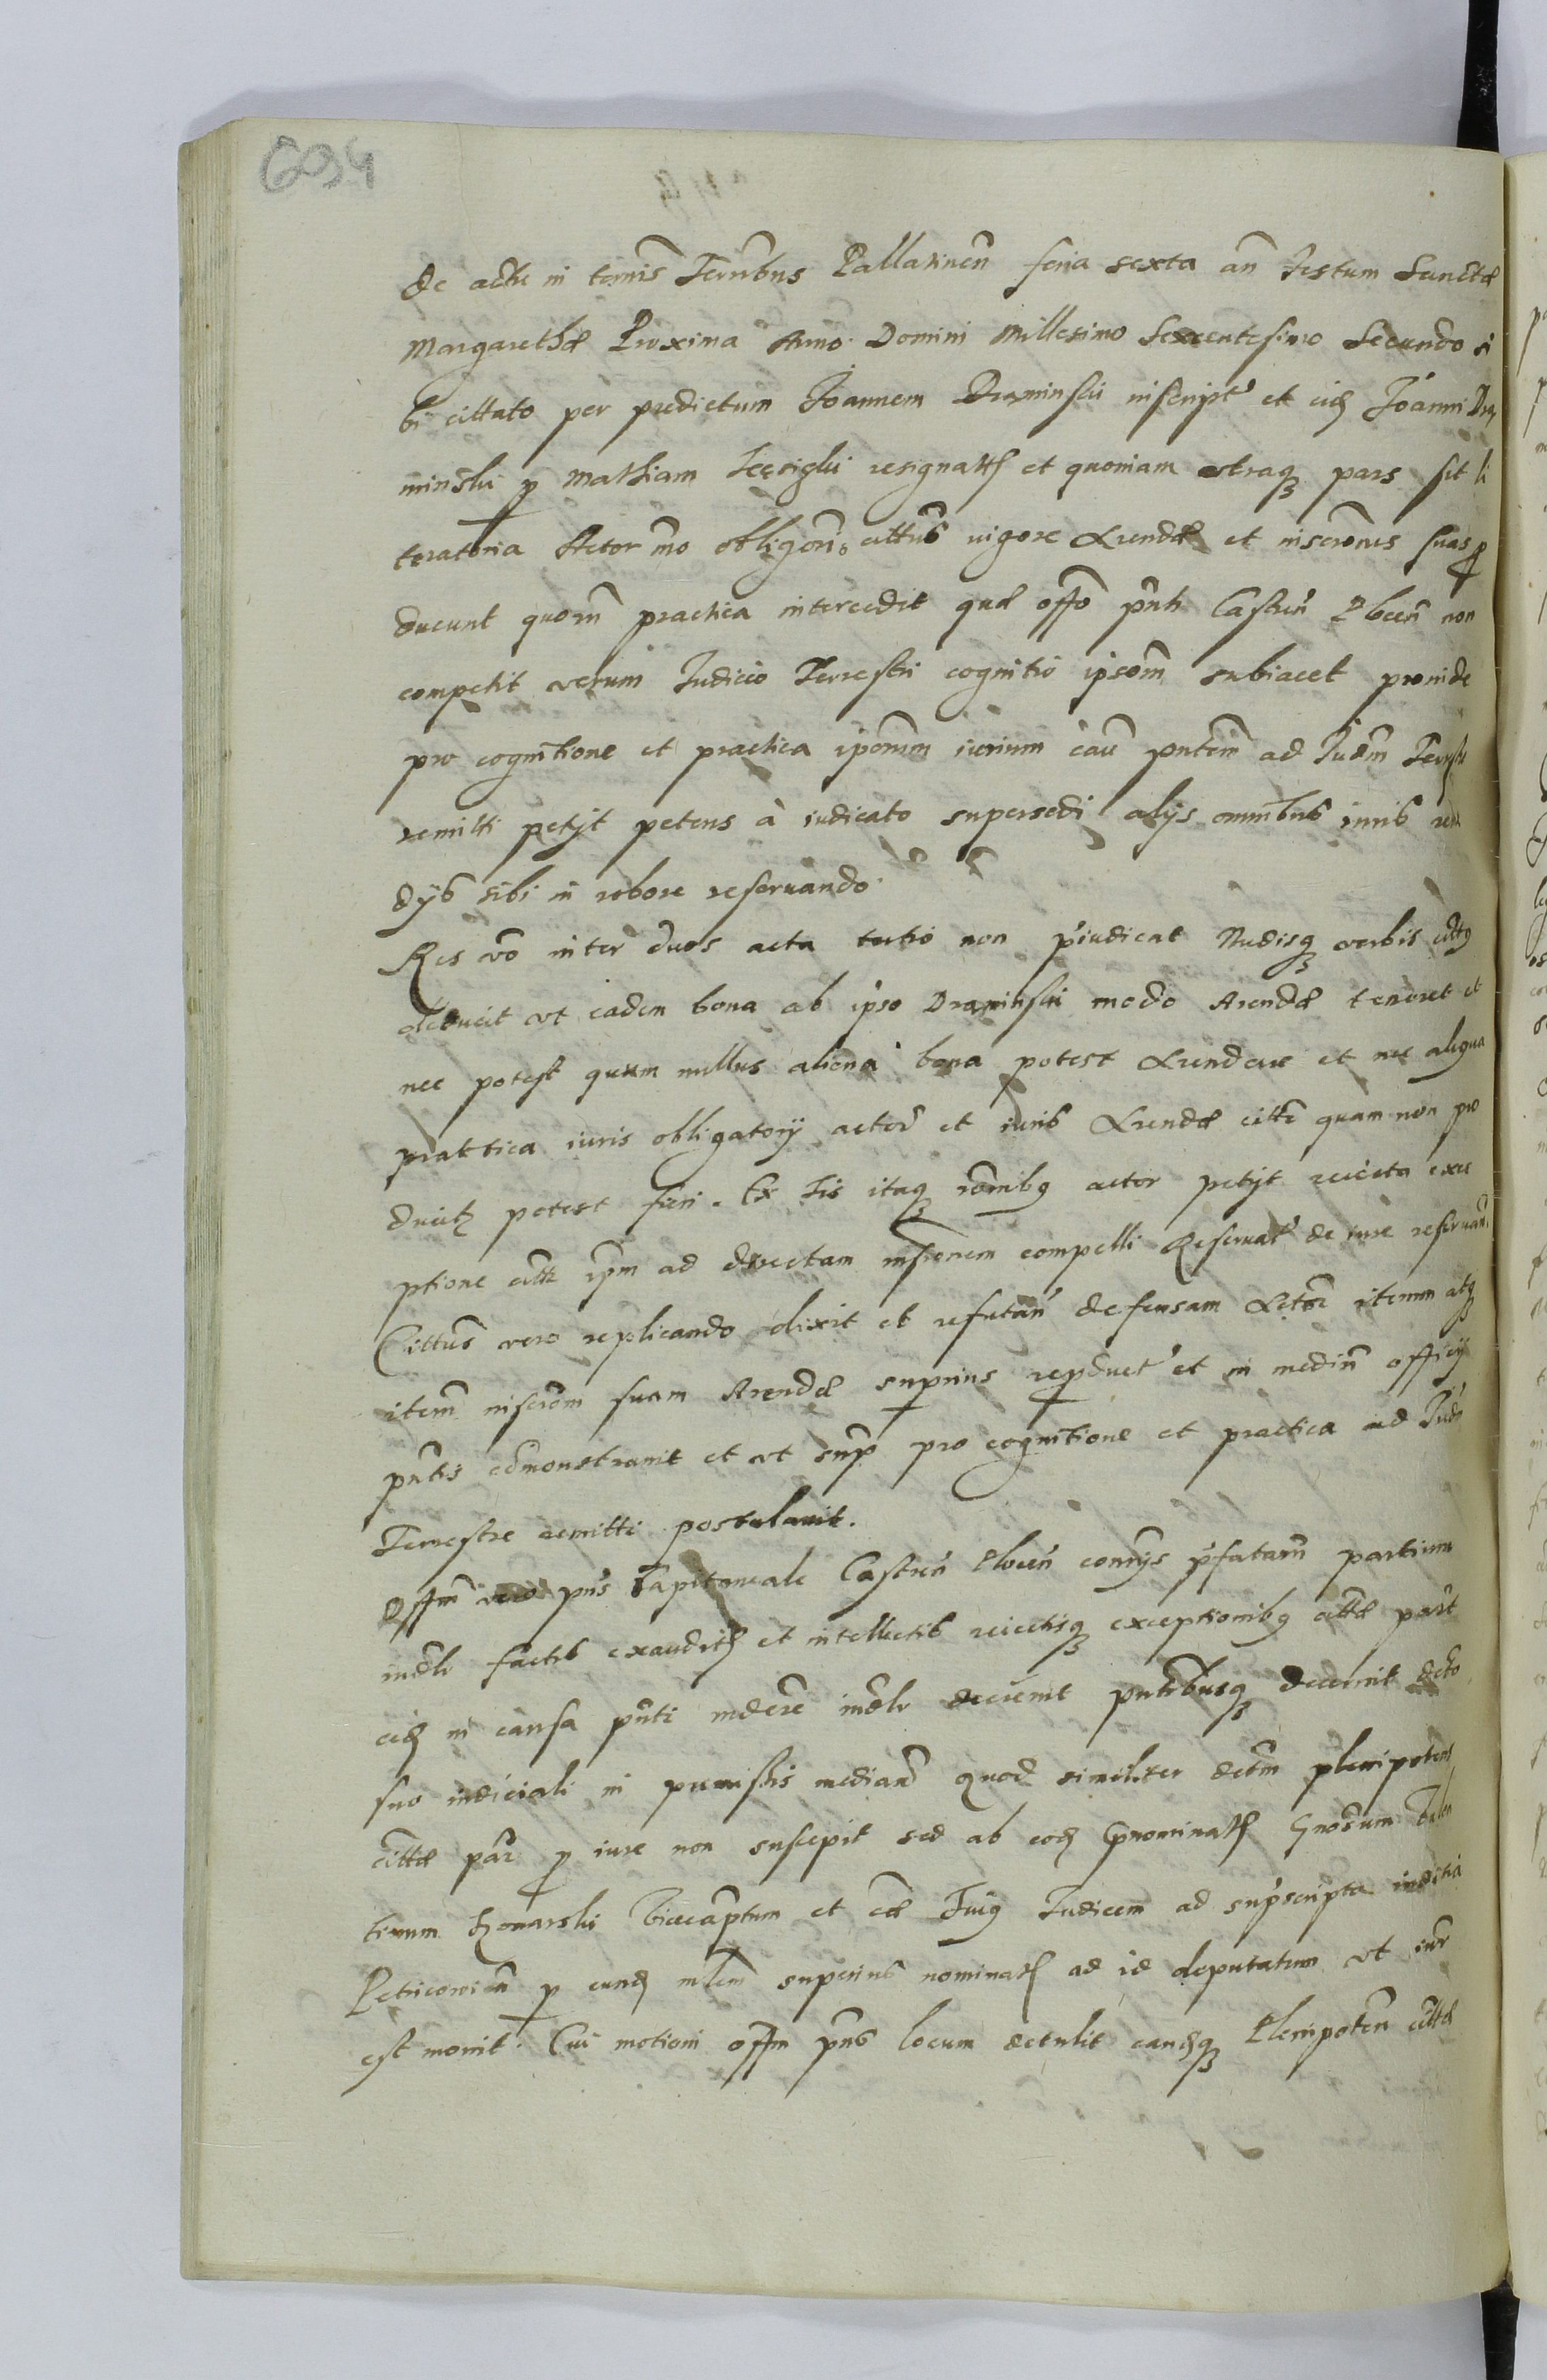 694
de actu in termis Terrbus Pallatinen feria sexta an festum Sanctæ
Margarethæ Proxima Anno Domini Millesimo Sexcentesimo Secundo si
bi cittato per predictum Joannem Draminski inscript et eid Joanni Dra
minski p Mathiam resignatt et quoniam utraq pars sit li
teratoria Actor mo obligoris cittus vigore Arendæ et inscronis suas p
ducunt quorm practica intercedit quæ offo pnti Castren Plocen non
competit verum Judicio Terrestri cognitio ipsorm subiacet proinde
pro cognitione et practica ipsorum iurium cau pntem ad Judm Terrstre
remitti petyt petens à iudicato supersedi alys omnibus iurib reme
dyb sibi in robore reservando
Res vo inter duos acta tertio non piudicat Nudisq verbis cittus
deducit ut eadem bona ab ipso Draminski modo Arendæ teneret et
nec potest quum nullus aliena bona potest Arendare et nec aliqua
prattica iuris obligatorij actor et iurib Arendæ citti quam non pro
ducit potest fieri. Ex his itaq ronibg actor petyt reiecta exce
ptione citti ipm ad directam insionem compelli Reservat de iure reservan
Cittus vero replicando dixit et refutan defensam Actor iterum atq
iterm inscrom suam Arendæ superius reproduct et in medium officij
pntis edmonstravit et ut supr pro cognitione et practica ad Judm
Terrestre remitti postulavit.
Offm vero pns Capitaneale Castren Plocen convijs pfatarm partium
indlr factis exauditis et intellectis reiectisq exceptionibg cittæ part
eid in causa pnti indere indlr decrevit pntibusq decernit decto
suo iudiciali in pmissis median quod similiter dectm plenipotens
cittæ par p iure non suscepit sed ab eod Gnominatt Gnosum Valen
tinum Komarski Vicecaptum et cæ Jug Judicem ad supscripta iudicia
Petricovien p eund mlem superius nominatt ad id deputatum ut iur
est movit. Cui motioni offm pns locum detulit eandq Plenipoten cittæ